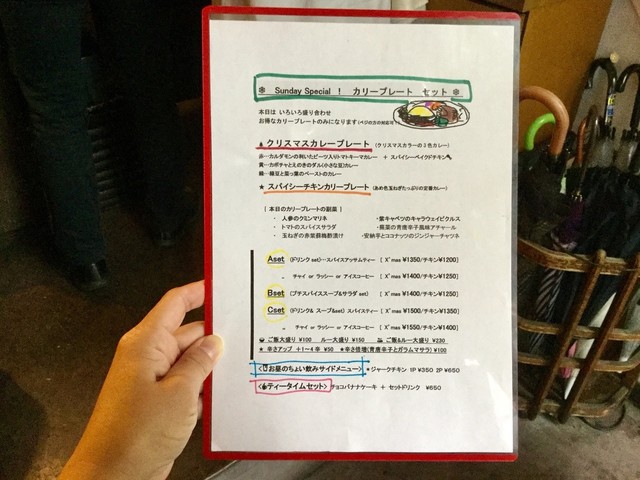 ❄ Sunday Special ！ カリープレート セット ❄
本日は いろいろ盛り合わせ
お得なカリープレートのみになります(ベジの方の対応可！)
▲クリスマスカレープレート (クリスマスカラーの3色カレー)
赤…カルダモンの利いたビーツ入りトマトキーマカレー ＋ スパイシーベイクドチキン
黄…カボチャとえきのダル(小さな豆)カレー
緑…緑豆と菜っ葉のペーストのカレー
★ スパイシーチキンカリープレート (あめ色玉ねぎたっぷりの定番カレー)
[ 本日のカリープレートの副菜 ]
・ 人参のクミンマリネ ・紫キャベツのキャラウェイピクルス
・ トマトのスパイスサラダ ・蕪菜の青唐辛子風味アチャール
・ 玉ねぎの赤紫蘇梅酢漬け ・安納芋とココナッツのジンジャーチャツネ
Aset (ドリンクset)…スパイスアッサムティー [ X'mas ¥1350/チキン¥1200]
〃 チャイ or ラッシー or アイスコーヒー [ X'mas ¥1400/チキン¥1250]
Bset (プチスパイススープ&サラダ set) [ X'mas ¥1400/チキン¥1250]
Cset (ドリンク& スープ&set) スパイスティー [ X'mas ¥1500/チキン¥1350]
〃 チャイ or ラッシー or アイスコーヒー [ X'mas ¥1550/チキン¥1400]
ご飯大盛り ¥100 ルー大盛り ¥150 ご飯&ルー大盛り ¥230
★ 辛さアップ ＋1～4 辛 ¥50 ★辛さ倍増(青唐辛子とガラムマサラ) ¥100
<お昼のちょい飲みサイドメニュー> ★ジャークチキン 1P ¥350 2P ¥650
<ティータイムセット> チョコバナナケーキ ＋ セットドリンク ¥650